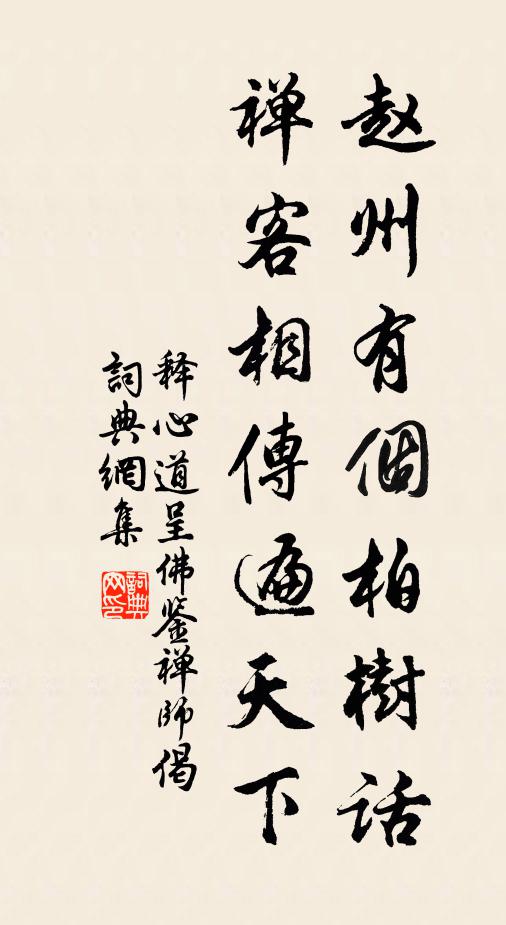 赵州有個柏樹话
禅客相傳遍天下
释心道呈佛鉴禅师偈
詞典網集
詞典网印